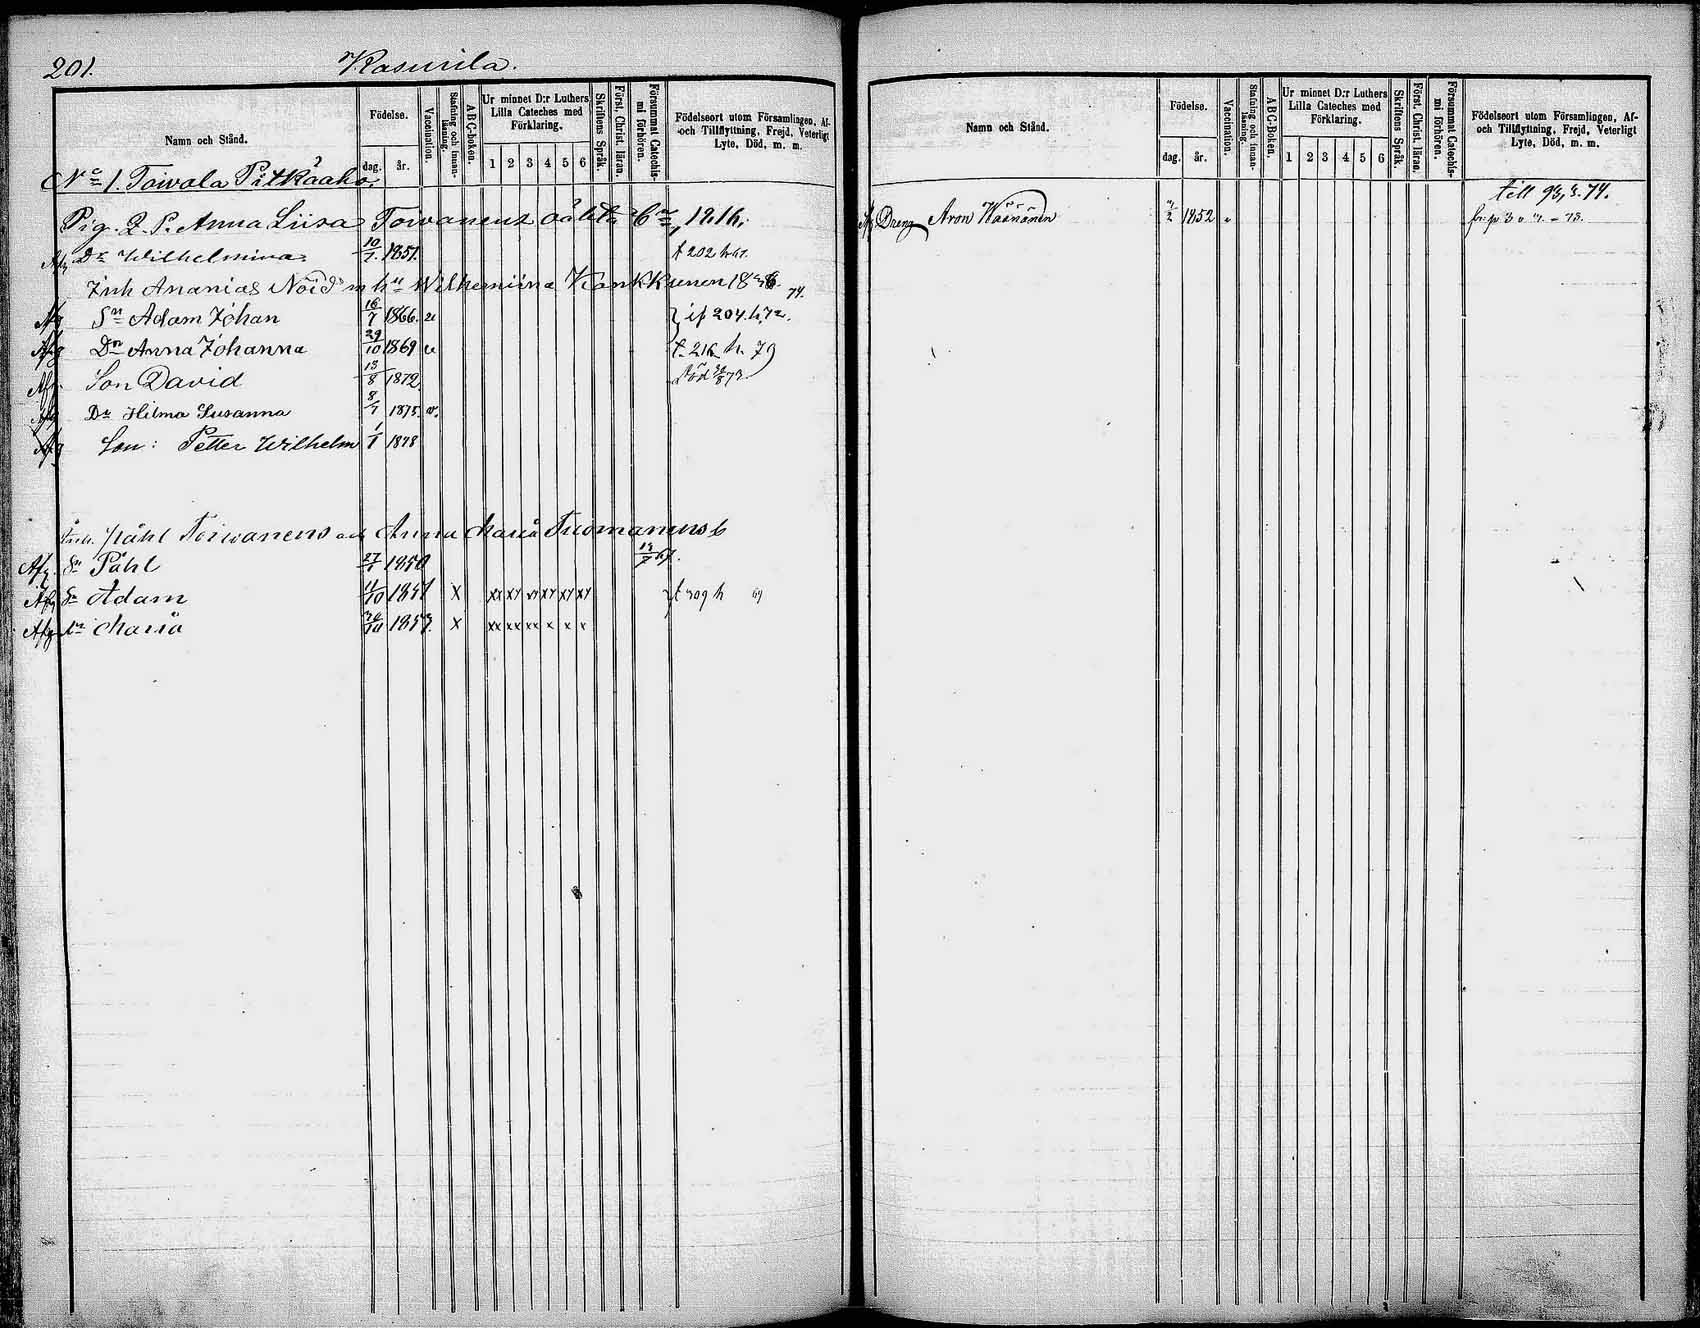 201.
Kasurila.
Namn och Stånd.
Födelse.
dag. år.
Vaccination.
Stafning och innanläsning.
ABC-boken.
Ur minnet D:r Luthers Lilla Cateches med Förklaring.
1 2 3 4 5 6
Skriftens Språk.
Först. Christ. läran.
Försummat Catechismi förhören.
Födelseort utom Församlingen, Af- och Tillflyttning, Frejd, Veterligt Lyte, Död, m. m.
No 1. Toivola Pitkäaho.
Pig. Anna Liisa Toivanens oäkta
Afg Dr Wilhelmina 10/7 1851. t 202 h
Inh Ananias m hu Wilhemiina
Afg Sn Adam Johan 16/7 1866. v 204. h. 72.
Afg Dr Anna Johanna 29/10 1869 v h. 79
Afg. Son David 13/8 1872. död
Afg Dr Hilma Susanna 8/7 1875. v.
Afg Son: Petter Wilhelm 1/1 1878
Påhl Toivanens och Anna Maria b
Afg. Sn Påhl 27/1 1850
Afg Sn Adam 11/10 1851 x xx xx xx xx xx xx t 309 h 69
Afg Dr Maria x xx xx xx x x x
Namn och Stånd.
Födelse.
dag. år.
Vaccination.
Stafning och innanläsning.
ABC-Boken.
Ur minnet D:r Luthers Lilla Cateches med Förklaring.
1 2 3 4 5 6
Skriftens Språk.
Först. Christ. läran.
Försummat Catechismi förhören.
Födelseort utom Församlingen, Af- och Tillflyttning, Frejd, Veterligt Lyte, Död, m. m.
till 93, 74.
Afg Dreng Aron 1852